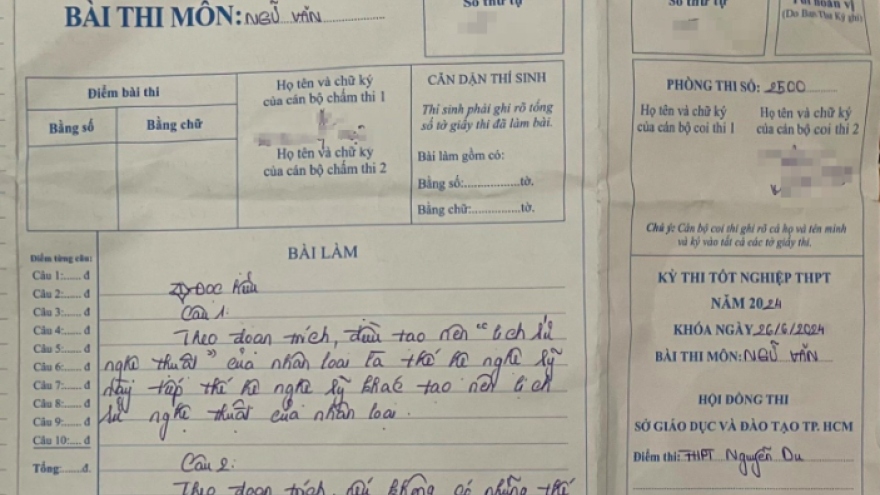 BÀI THI MÔN: NGỮ VĂN
Số thứ tự
Điểm bài thi
Bằng số
Bằng chữ
Họ tên và chữ ký
của cán bộ chấm thi 1
Họ tên và chữ ký
của cán bộ chấm thi 2
CĂN DẶN THÍ SINH
Thí sinh phải ghi rõ tổng
số tờ giấy thi đã làm bài.
Bài làm gồm có:
Bằng số:....................tờ.
Bằng chữ:..................tờ.
Điểm từng câu:
Câu 1:...... đ
Câu 2:...... đ
Câu 3:...... đ
Câu 4:...... đ
Câu 5:...... đ
Câu 6:...... đ
Câu 7:...... đ
Câu 8:...... đ
Câu 9:...... đ
Câu 10:.... đ
Tổng:........đ.
BÀI LÀM
I) Đọc hiểu
Câu 1:
Theo đoạn trích, điều tạo nên "lịch sử
nghệ thuật" của nhân loại là thế hệ nghệ sỹ
này tiếp thế hệ nghệ sỹ khác tạo nên lịch
sử nghệ thuật của nhân loại.
Câu 2:
Theo đoạn trích, nếu không có những thế
Số thứ tự
(Do Ban Thư Ký ghi)
PHÒNG THI SỐ: 2500
Họ tên và chữ ký
của cán bộ coi thi 1
Họ tên và chữ ký
của cán bộ coi thi 2
Chú ý: Cán bộ coi thi ghi rõ cả họ và tên mình
và ký vào tất cả các tờ giấy thi.
KỲ THI TỐT NGHIỆP THPT
NĂM 2024
KHÓA NGÀY 26/6/2024
BÀI THI MÔN: NGỮ VĂN
HỘI ĐỒNG THI
SỞ GIÁO DỤC VÀ ĐÀO TẠO TP. HCM
Điểm thi: THPT Nguyễn Du